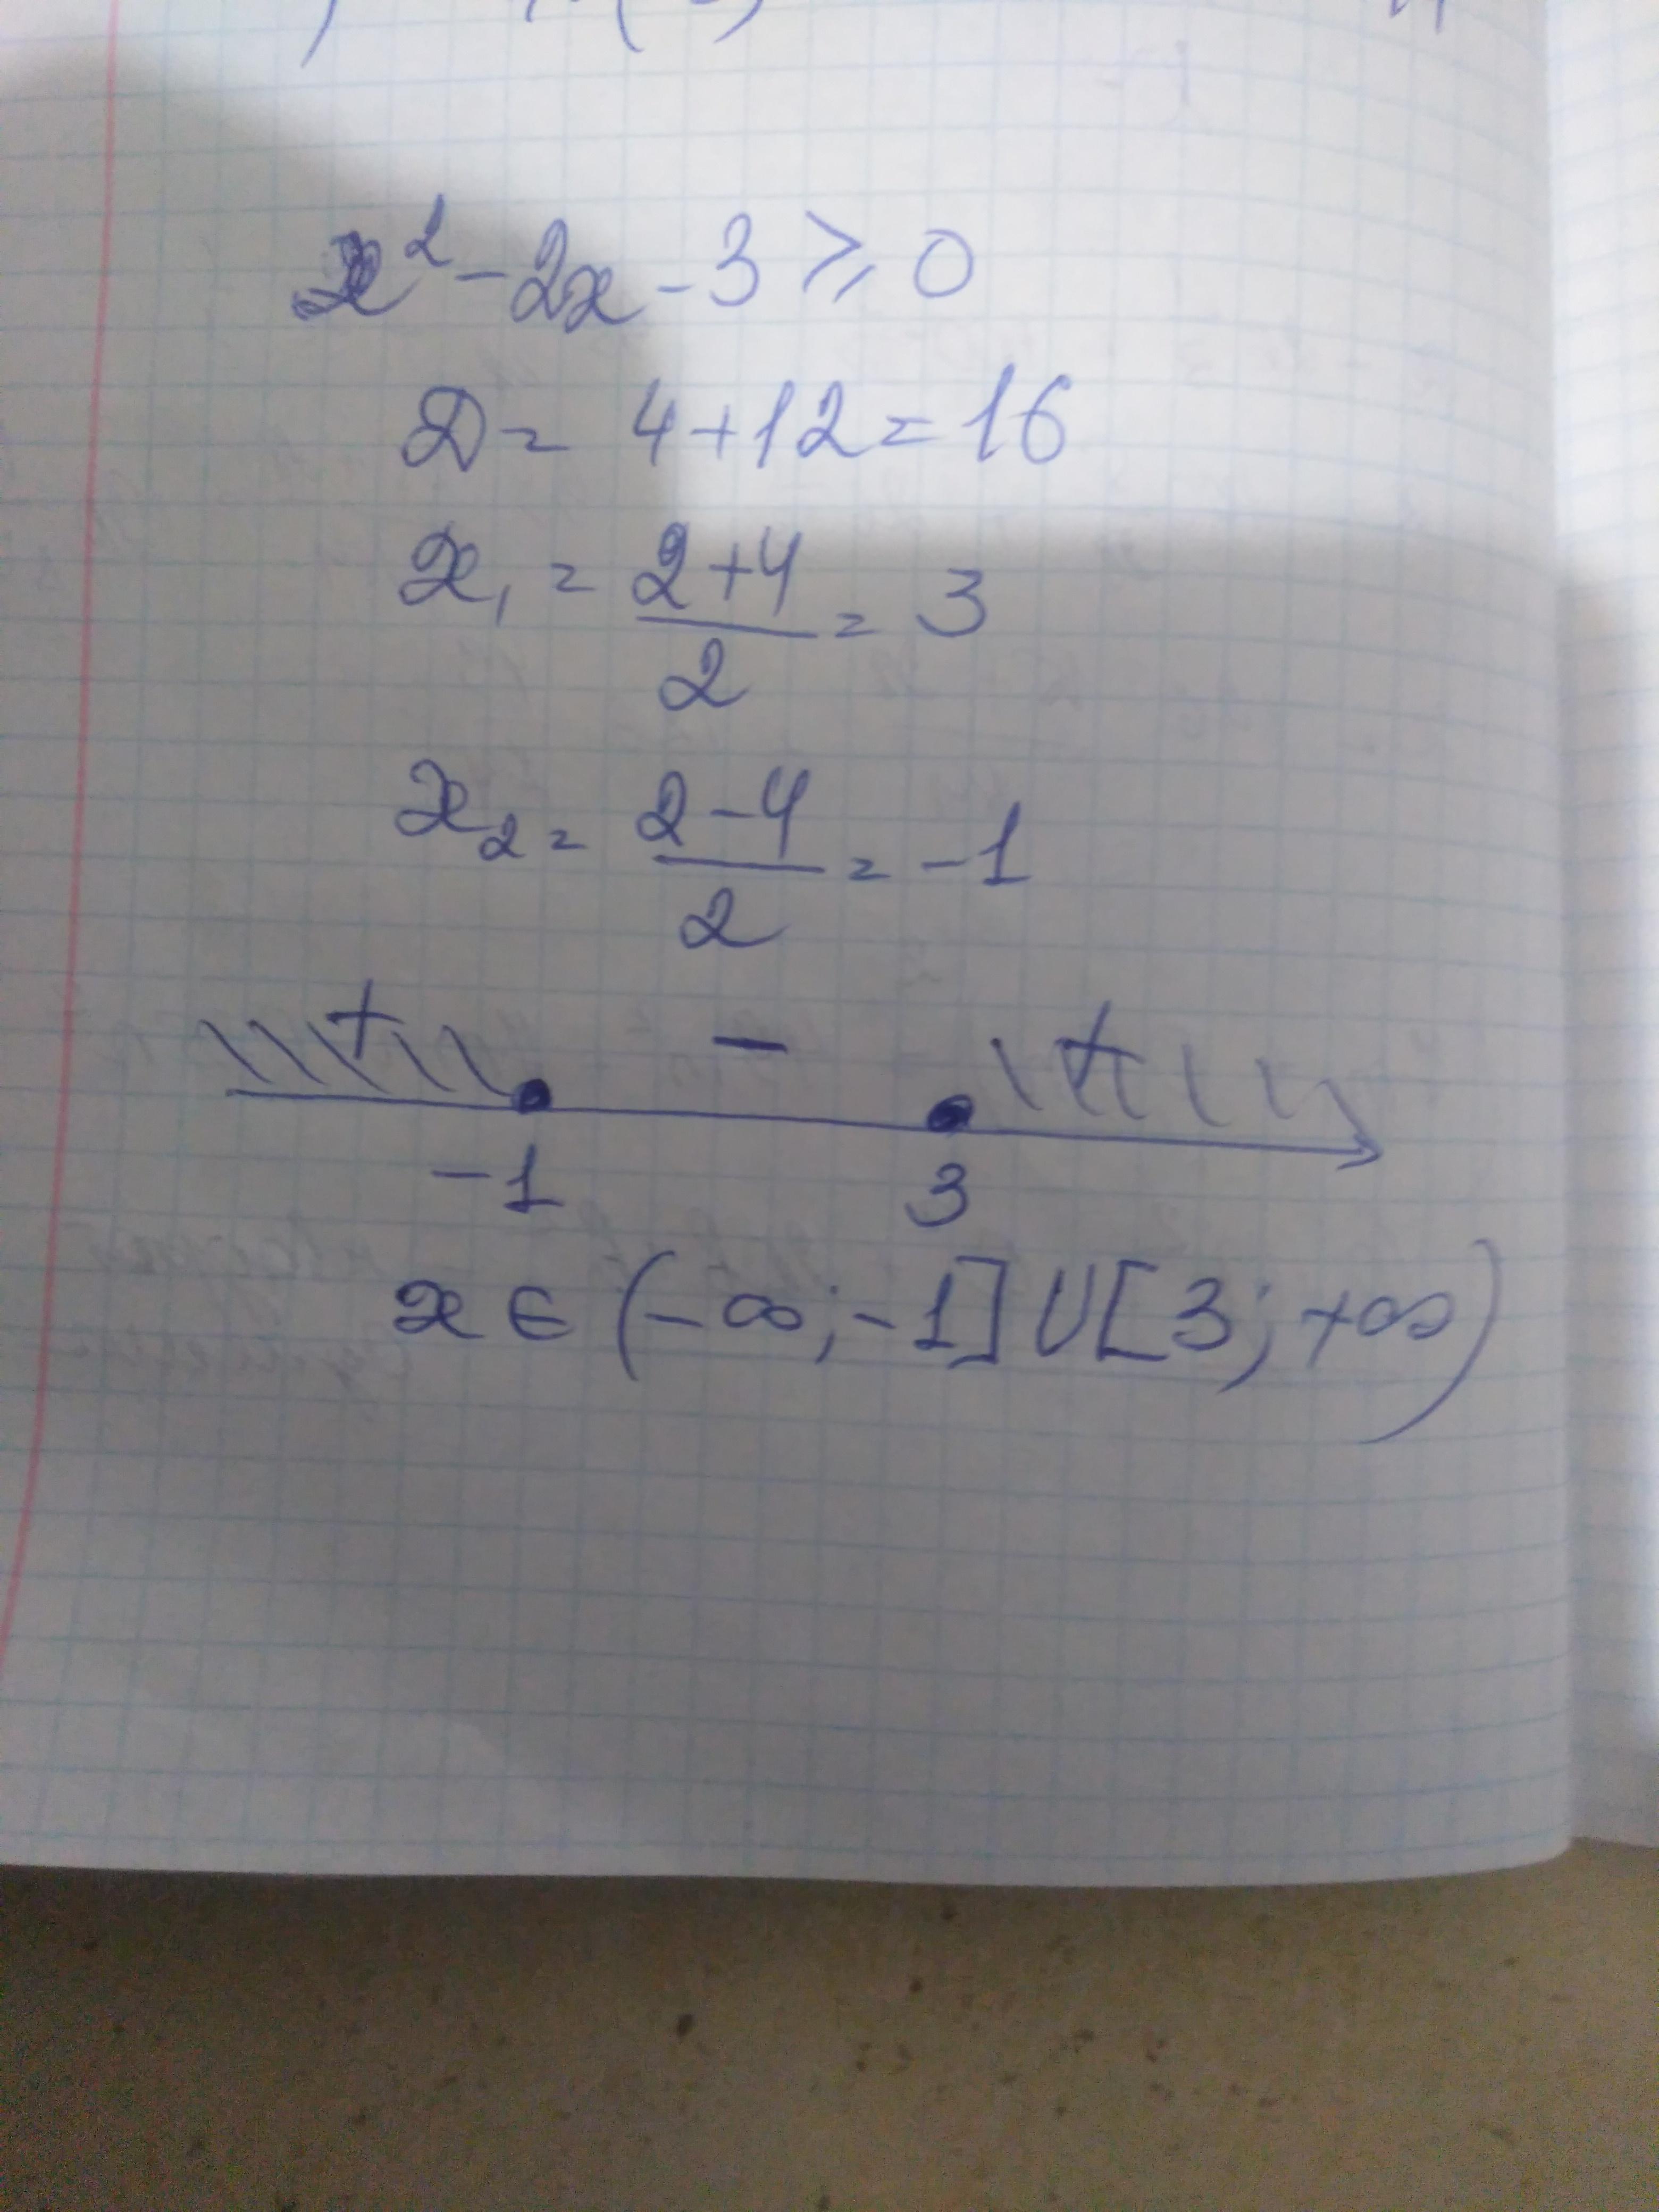 x² - 2x - 3 ⩾ 0
D = 4 + 12 = 16
x₁ = (2+4)/2 = 3
x₂ = (2-4)/2 = -1
+ - +
-1 3
x ∈ (-∞; -1] ∪ [3; +∞)